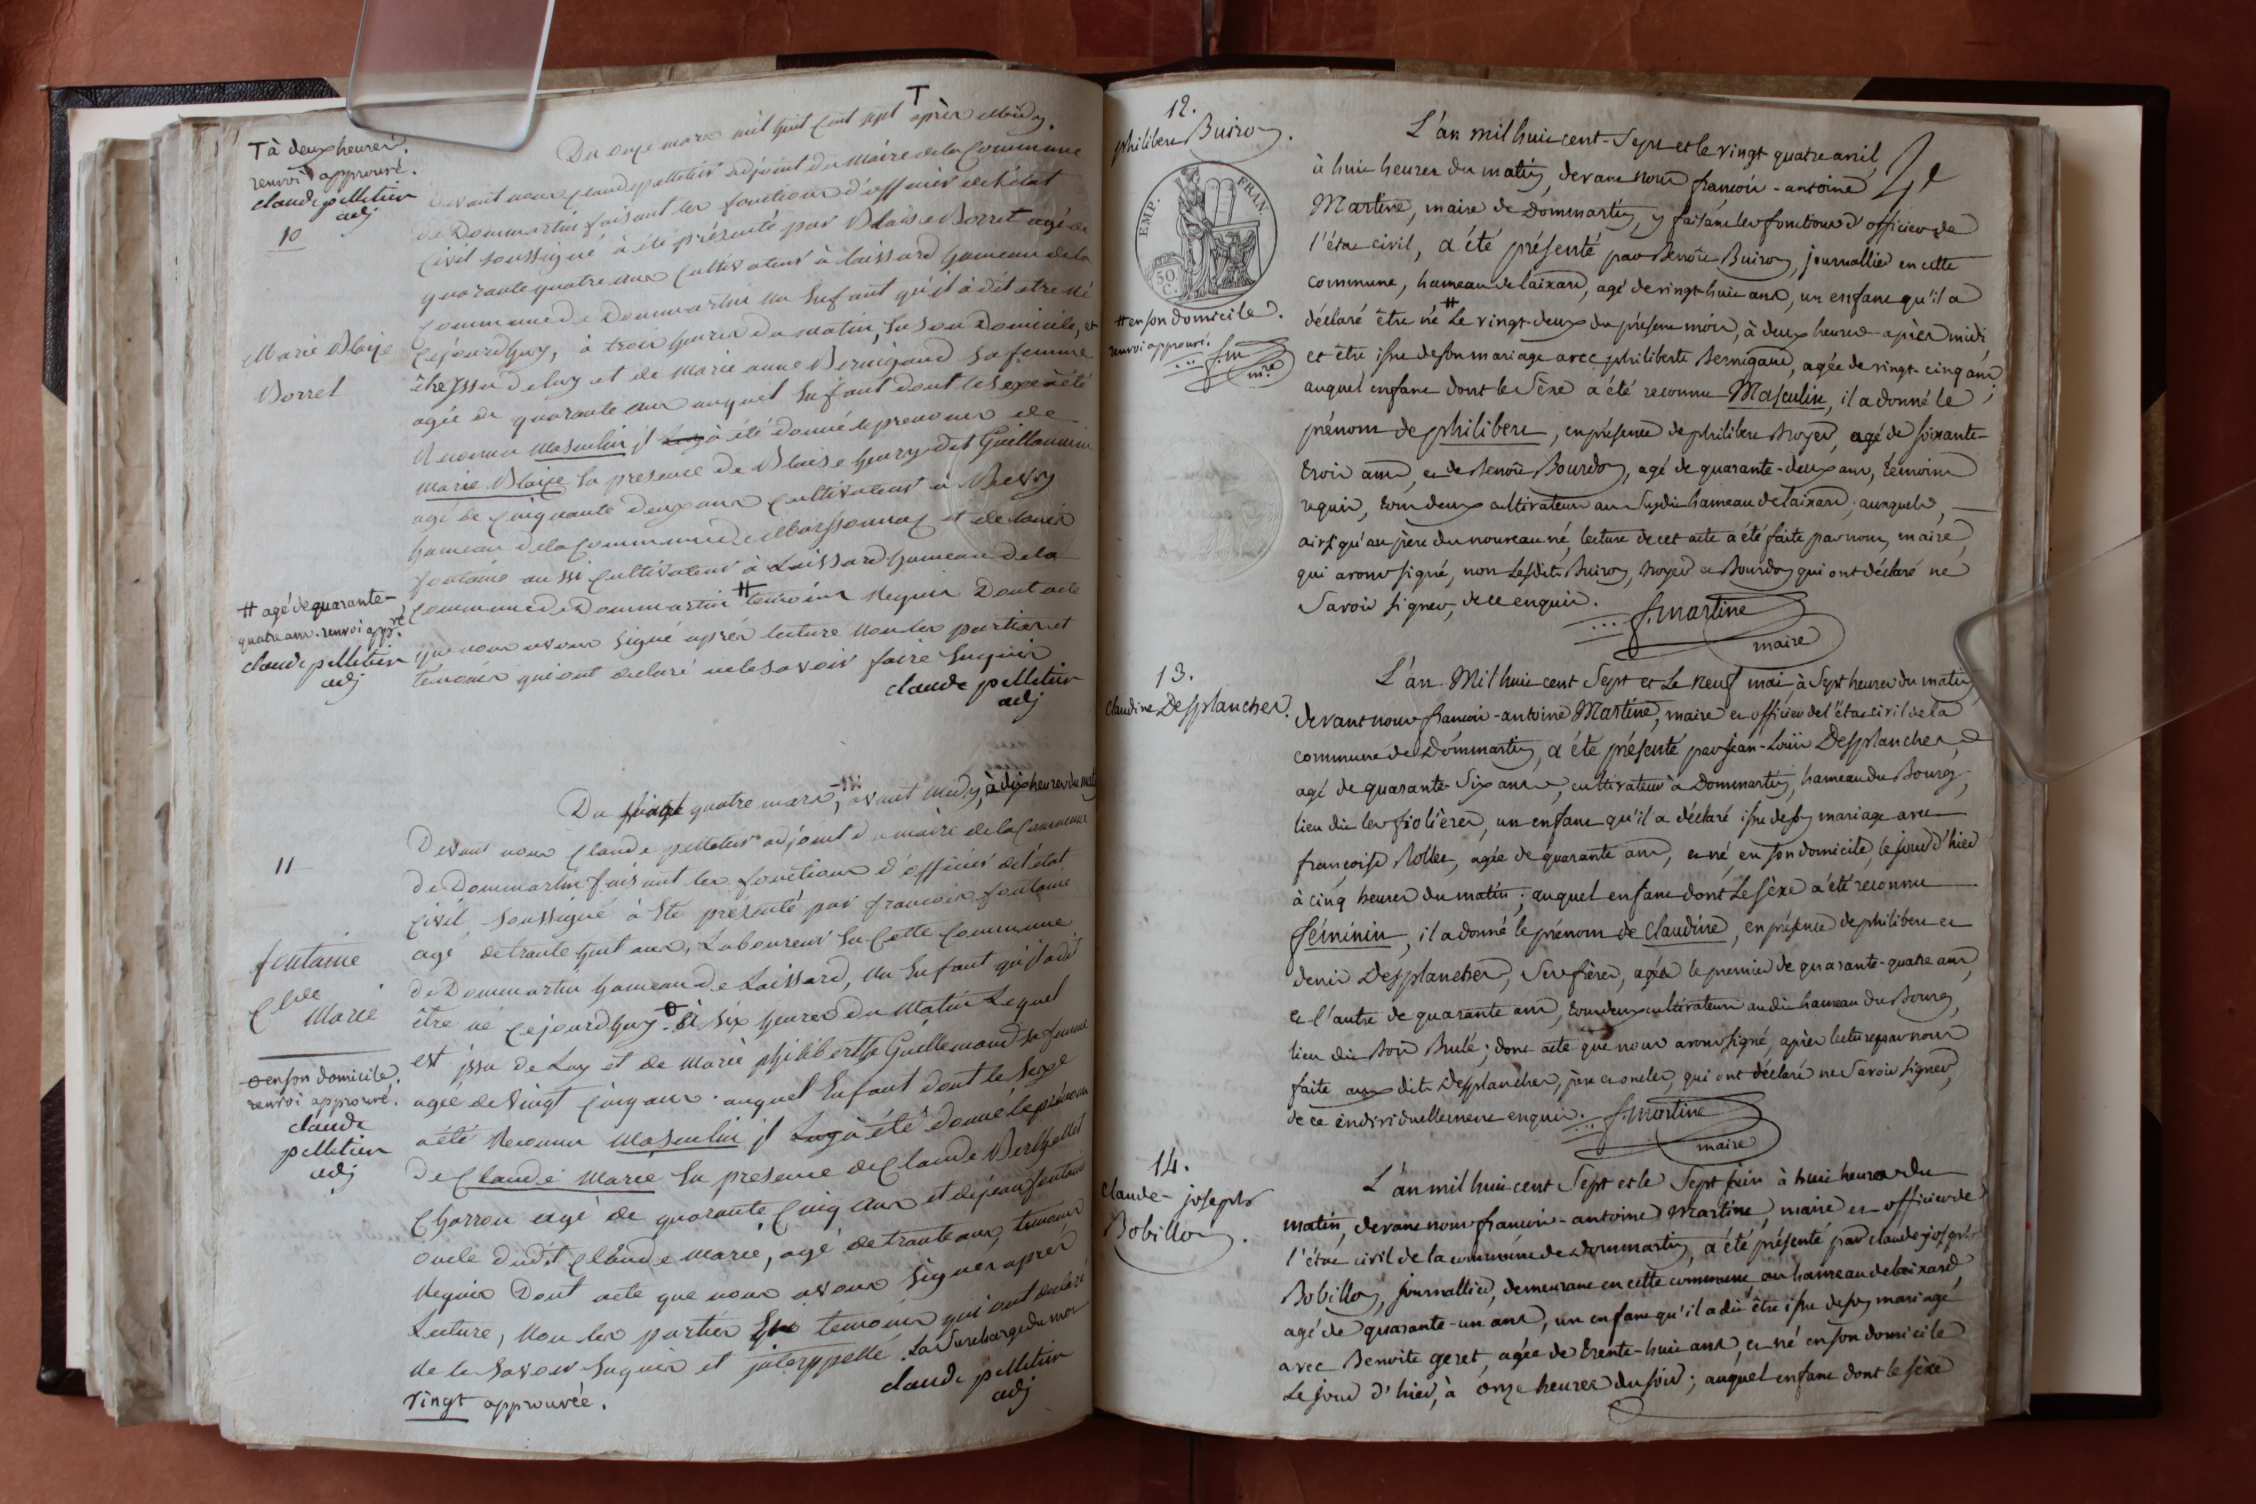 T à deux heures.
renvoi approuvé.
claude pelletier
adj
10
Marie Blaise
Borret
Du onze mars mil huit cent sept T après midy.
devant nous claude pelletier adjoint du Maire de la Commune
de Dommartin faisant les fonctions d'officier de l'état
Civil soussigné à été présenté par Blaise Borret agé de
quarante quatre ans Cultivateur à laissard hameau de la
Commune de Dommartin un Enfant qu'il à dit etre né
Cejourdhuy, à trois heures du matin, en son Domicile, et
être issu de luy et de Marie anne Bernigaud sa femme
agée de quarante ans auquel Enfant dont le sexe à été
Reconnu masculin il à été donné le prenom de
marie Blaise En presence de Blaise henry dit Guillaumin
agé de Cinquante deux ans Cultivateur à
hameau de la Commune de et de louis
fontaine aussi Cultivateur à Laissard hameau de la
Commune de Dommartin # temoins Requis Dont acte
que nous avons signé après lecture non les parties et
temoins qui ont declaré ne le savoir faire Enquis
claude pelletier
adj
# agé de quarante-
quatre ans. renvoi appvé.
claude pelletier
adj
11
fontaine
Cl de
Marie
Du vingt quatre mars, avant midy, à dix heures du matin
Devant nous Claude pelletier adjoint du maire de la Commune
de Dommartin faisant les fonctions d'officier de l'état
Civil soussigné à Eté présenté par francois fontaine
agé de trante huit ans, Laboureur En Cette Commune
de Dommartin hameau de Laissard, un Enfant qu'il a dit
être né Cejourdhuy ɵ à six heures du Matin Lequel
est issu de Luy et de Marie philiberthe Guillemaud sa femme
agée de vingt Cinq ans. auquel Enfant dont le Sexe
a été Reconnu Masculin il à été donné le prénom
de Claude Marie En presence de Claude Berthellet
Charron agé de quarante Cinq ans et de jean fontaine
oncle dudit Claude Marie, agé de trante ans, temoins
Requis Dont acte que nous avons signer après
Lecture, non les parties temoins qui ont declaré
ne le savoir Enquis et interppellé. La Surcharge du mot
vingt approuvée.
claude pelletier
adj
ɵ en son domicile.
renvoi approuvé.
claude
pelletier
adj
12.
philibert Buiron.
EMP. FRAN.
50
C.
# en son domicile.
renvoi approuvé.
f. m
mre
L'an mil huit cent-Sept et le vingt quatre avril,
à huit heures du matin, devant nous françois-antoine
Martine, maire de Dommartin, y faisant les fonctions d'officier de
l'état civil, a été présenté par Benoît Buiron, journallier en cette
commune, hameau de laixard, agé de vingt-huit ans, un enfant qu'il a
déclaré être né # Le vingt-deux du présent mois, à deux heures après midi
et être issu de son mariage avec philiberte Bernigaud, agée de vingt-cinq ans,
auquel enfant dont le Sèxe a été reconnu Masculin, il a donné le
prénom de philibert, en présence de philibert Broyer, agé de soixante-
trois ans, et de Benoît Bourdon, agé de quarante-deux ans, témoins
requis, tous deux cultivateurs au Susdit hameau de laixard, auxquels,
ainsi qu'au père du nouveau né, lecture de cet acte a été faite par nous, maire,
qui avons signé, non Lesdits Buiron, Broyer et Bourdon qui ont déclaré ne
Savoir signer, de ce enquis.
f. martine
maire
13.
claudine Desplanches.
L'an Mil huit cent Sept et Le neuf mai, à Sept heures du matin
devant nous françois-antoine Martine, maire et officier de l'état civil de la
commune de Dommartin, a été présenté par jean-Louis Desplanches,
agé de quarante-Six ans, cultivateur à Dommartin, hameau du Bourg,
lieu dit les fiolières, un enfant qu'il a déclaré issu de son mariage avec
françoise Rollet, agée de quarante ans, et né, en son domicile, le jour d'hier
à cinq heures du matin; auquel enfant dont Le Sèxe a été reconnu
féminin, il a donné le prénom de Claudine, en présence de philibert et
denis Desplanches, Ses frères, agés le premier de quarante-quatre ans,
et l'autre de quarante ans, tous deux cultivateurs audit hameau du Bourg,
lieu dit Bois Brulé; dont acte que nous avons signé, après lecture par nous
faite auxdits Desplanches, père et oncles, qui ont déclaré ne Savoir Signer,
de ce individuellement enquis.
f. martine
maire
14.
Claude-joseph
Bobillon.
L'an mil huit cent Sept et le Sept juin à huit heures du
matin, devant nous françois-antoine Martine, maire et officier de
l'état civil de la commune de Dommartin, a été présenté par claude-joseph
Bobillon, journallier, demeurant en cette commune au hameau de laixard,
agé de quarante-un ans, un enfant qu'il a dit être issu de son mariage
avec Benoite geret, agée de trente-huit ans, et né en son domicile
Le jour d'hier, à onze heures du soir; auquel enfant dont le sèxe